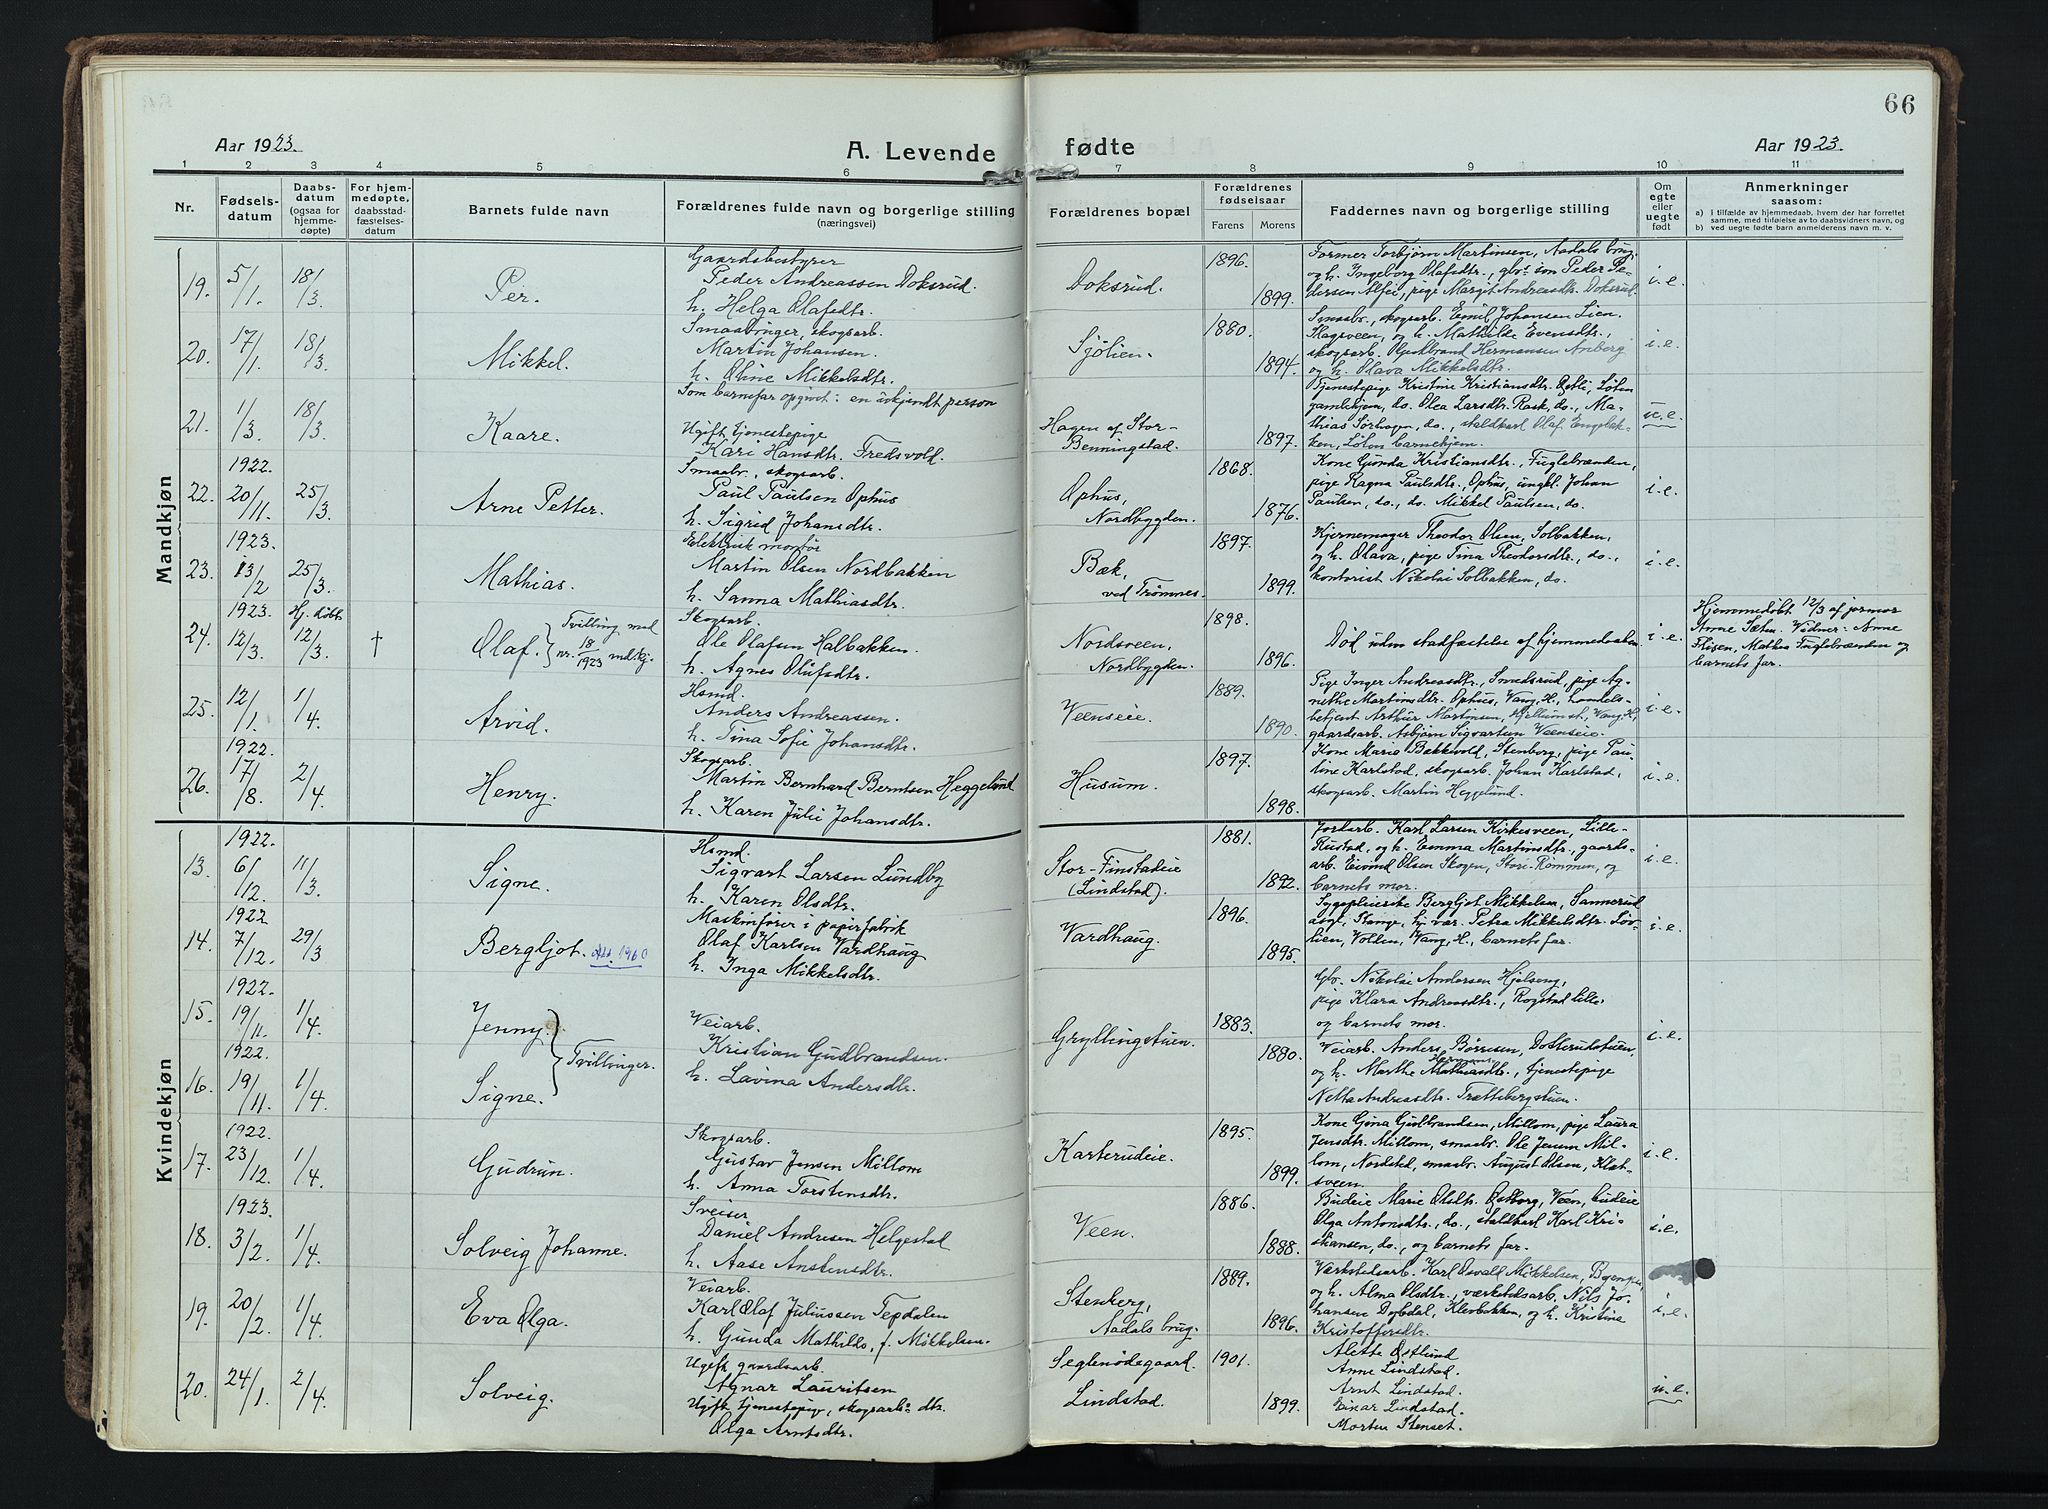 66
Aar 1923.
A. Levende fødte
Aar 1923.
1 2 3 4 5 6 7 8 9 10 11
Nr.
Fødsels-
datum
Daabs-
datum
(ogsaa for
hjemme-
døpte)
For hjem-
medøpte,
daabsstad-
fæstelses-
datum
Barnets fulde navn
Forældrenes fulde navn og borgerlige stilling
(næringsvei)
Forældrenes bopæl
Forældrenes
fødselsaar
Farens Morens
Faddernes navn og borgerlige stilling
Om
egte
eller
uegte
født
Anmerkninger
saasom:
a) i tilfælde av hjemmedaab, hvem der har forrettet
samme, med tilføielse av to daabsvidners navn, og
b) ved uegte fødte barn anmelderens navn m. v.
Mandkjøn
19. 5/1. 18/3. Per.
Gaardsbestyrer
Peder Andreassen Doksrud.
h. Helga Olafsdtr.
Doksrud.
1896.
1899.
Former Torbjørn Martinsen, Aadals brug,
og h. Ingeborg Olafsdtr., gbr. søn Peder Pe-
dersen Alfei, pige Margit Andreasdtr. Doksrud.
i. e.
20. 17/1. 18/3. Mikkel.
Smaabruger, skogsarb.
Martin Johansen.
h. Oline Mikkelsdtr.
Sjølien.
1880.
1894.
Smaabr., skogsarb. Emil Johansen Lien.
Flagsveen, og h. Mathilde Evensdtr.,
skogsarb. Gudbrand Hermansen Anberg
og h. Olava Mikkelsdtr.
i. e.
21. 1/3. 18/3. Kaare.
Som barnefar opgivet: en ukjendt person
Ugift tjenestepige
Kari Hansdtr. Fredsvold.
Hagen af Stor-
Benningstad.
1897.
Tjenestepige Kristine Kristiansdtr. Løten
gamlehjem, do. Olea Larsdtr. Rask, do., Ma-
thias Sørhagen, do., staldkarl Olaf Engebak-
ken, Løten barnehjem.
u. e.
22. 1922. 20/11. 25/3. Arne Petter.
Smaabr., skogsarb.
Paul Paulsen Ophus
h. Sigrid Johansdtr.
Ophus,
Nordbygden.
1868.
1876.
Kone Gunda Kristiansdtr., Fuglebrænden,
pige Ragna Paulsdtr., Ophus, ungk. Johan
Paulsen, do., do. Mikkel Paulsen, do.
i. e.
23. 1923. 13/2 25/3. Mathias.
Elektrisk montør
Martin Olsen Nordbakken
h. Sanna Mathiasdtr.
Bæk,
ved Trømnes.
1897.
1899.
Kjernemager Theodor Olsen, Solbakken,
og h. Olava, pige Tina Theodorsdtr., do.,
kontorist Nikolai Solbakken, do.
i. e.
24. 1923. 12/3. Hj. døbt 12/3. † Olaf. Tvilling med nr. 18/1923 md.kj.
Skogsarb.
Ole Olafsen Halbakken.
h. Agnes Olufsdtr.
Nordsveen,
Nordbygden.
1898.
1896.
Død uden stadfæstelse af hjemmedaaben.
i. e.
Hjemmedøbt 12/3 af jormor
Anne Sæten. Vidner: Anne
Flisen, Mathea Fuglebrænden og
barnets far.
25. 12/1. 1/4. Arvid.
Hsmd.
Anders Andreassen.
h. Tina Sofie Johansdtr.
Veenseie.
1889.
1890.
Pige Inger Andreasdtr., Smedsrud, pige Ag-
nethe Martinsdtr. Ophus, Vang, H., handels-
betjent Arthur Martinsen, Hjellum st., Vang, H.,
gaardsarb. Asbjørn Sigvartsen Veenseie.
i. e.
26. 1922. 17/8. 2/4. Henry.
Skogsarb.
Martin Bernhard Berntsen Heggelund
h. Karen Julie Johansdtr.
Husum.
1897.
1898.
Kone Maria Bækkevold, Stenberg, pige Pau-
line Karlstad, skogsarb. Johan Karlstad,
skogsarb. Martin Heggelund.
i. e.
Kvindekjøn
13. 1922. 6/12. 11/3. Signe.
Hsmd.
Sigvart Larsen Lundby
h. Karen Olsdtr.
Stor-Finstadeie
(Lindstad).
1881.
1892.
Jordarb. Karl Larsen Kirkesveen, Lille-
Rustad, og h. Emma Martinsdtr., gaards-
arb. Eivind Olsen Skogen, Stori-Rommen, og
barnets mor.
i. e.
14. 1922 7/12. 29/3 Bergljot. 1960
Maskinfører i papirfabrik
Olaf Karlsen Vardhaug
h. Inga Mikkelsdtr.
Vardhaug.
1896.
1895.
Sygepleierske Bergljot Mikkelsen, Sannerud
asyl, Stange, hj. var. Petra Mikkelsdtr. Løv-
lien, Volden, Vang, H., barnets far.
i. e.
15. 1922. 19/11. 1/4. Jenny.
16. 1922. 19/11. 1/4. Signe.
Tvillinger.
Veiarb.
Kristian Gudbrandsen.
h. Lavina Andersdtr.
Gryllingstuen.
1883.
1880.
Gbr. Nikolai Andersen Hjelseng,
pige Klara Andreasdtr., Rogstad lille,
og barnets mor.
Veiarb. Anders Børresen, Dotterudstuen,
og h. Marthe Mathiasdtr., tjenestepige
Netta Andreasdtr. Trættebergstuen.
i. e.
17. 1922. 23/12. 1/4. Gudrun.
Skogsarb.
Gustav Jensen Millom
h. Anna Torstensdtr.
Karterudeie.
1895.
1899.
Kone Gina Gudbrandsen, Millom, pige Laura
Jensdtr. Millom, smaabr. Ole Jensen Mil-
lom, Nordstad, smaabr. August Olsen, Klæt-
sveen.
i. e.
18. 1923. 3/2. 1/4. Solveig Johanne.
Sveiser
Daniel Andresen Helgestad
h. Aase Anstensdtr.
Veen.
1886.
1888.
Budeie Marie Olsdtr. Østborg, Veen, budeie
Olga Antonsdtr., do., staldkarl Karl Kri-
stiansen, do., og barnets far.
i. e.
19. 20/2. 1/4. Eva Olga.
Veiarb.
Karl Olaf Juliussen Tepdalen
h. Gunda Mathilde, f. Mikkelsen.
Stenberg,
Aadals brug.
1889.
1896.
Værkstedsarb. Karl Osvald Mikkelsen,
og h. Alma Olsdtr., værkstedsarb. Nils Jo-
hansen Dybdal, Klevbakken, og h. Kristine
Kristoffersdtr.
i. e.
20. 24/1. 2/4. Solveig.
Ugift gaardsarb.
Agnar Lauritsen
Ugift tjenestepige, skogsarb.s dtr.
Olga Arntsdtr.
Seglnødegaard.
Lindstad.
1901.
1899.
Alette Østlund
Anne Lindstad.
Arnt Lindstad.
Einar Lindstad.
Morten Stenset.
u. e.